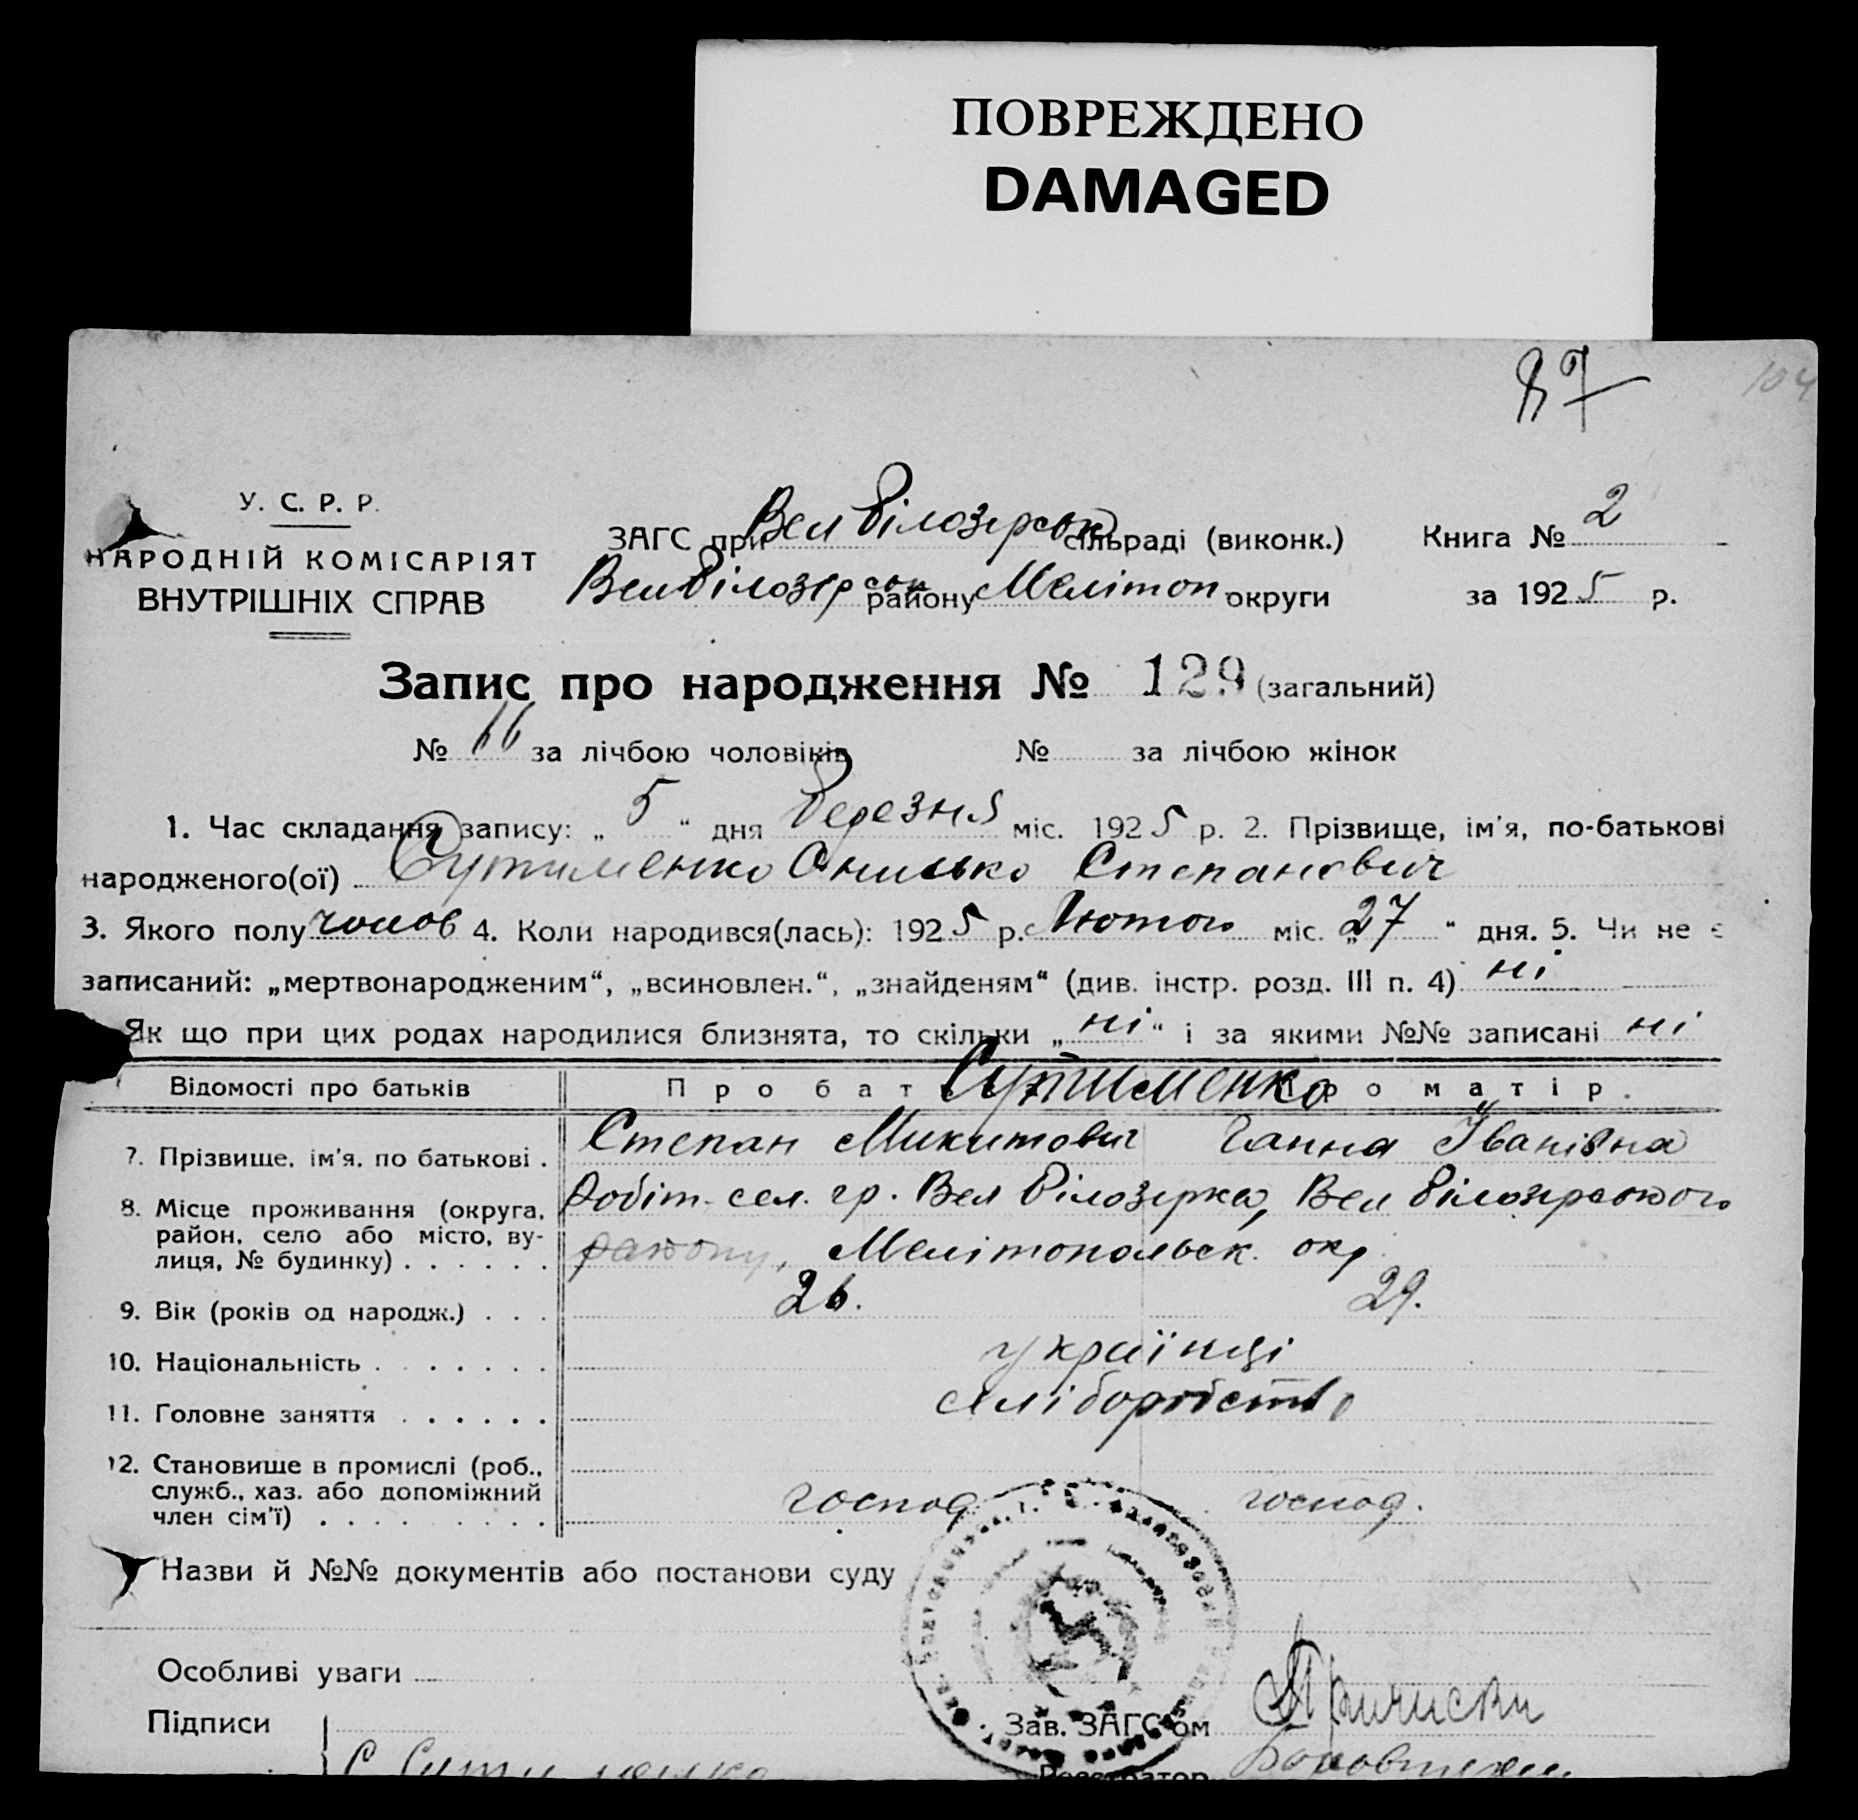 ПОВРЕЖДЕНО
DAMAGED
87
104
У. С. Р. Р.
НАРОДНІЙ КОМІСАРІЯТ
ВНУТРІШНІХ СПРАВ
ЗАГС при Вел Білозерськ сільраді (виконк.) Книга № 2
Вел Білозерськ району Мелітоп округи за 1925 р.
Запис про народження № 129 (загальний)
№ 66 за лічбою чоловіків № за лічбою жінок
1. Час складання запису: „5“ дня Березня міс. 1925 р. 2. Прізвище, ім'я, по-батькові
народженого(ої) Сутименко Онисько Степанович
3. Якого полу чолов 4. Коли народився(лась): 1925 р. Лютого міс. „27“ дня. 5. Чи не є
записаний: „мертвонародженим“, „всиновлен.“, „знайденям“ (див. інстр. розд. III п. 4) ні
Як що при цих родах народилися близнята, то скільки „ні“ і за якими №№ записані ні
Відомості про батьків Про бат Сутименко Про матір.
7. Прізвище, ім'я, по батькові . Степан Микитович Ганна Іванівна
8. Місце проживання (округа, район, село або місто, вулиця, № будинку) . . . . . . Робіт. сел. гр. Вел Білозерка, Вел Білозерського
району, Мелітопольськ. окр
9. Вік (років од народж.) . . . 26. 29.
10. Національність . . . . . . . українці
11. Головне заняття . . . . . . хліборобство
12. Становище в промислі (роб.,
служб., хаз. або допоміжний
член сім'ї) . . . . . . . . . господ. господ.
Назви й №№ документів або постанови суду
Особливі уваги
Підписи Зав. ЗАГС'ом
С Сутименко Реєстратор